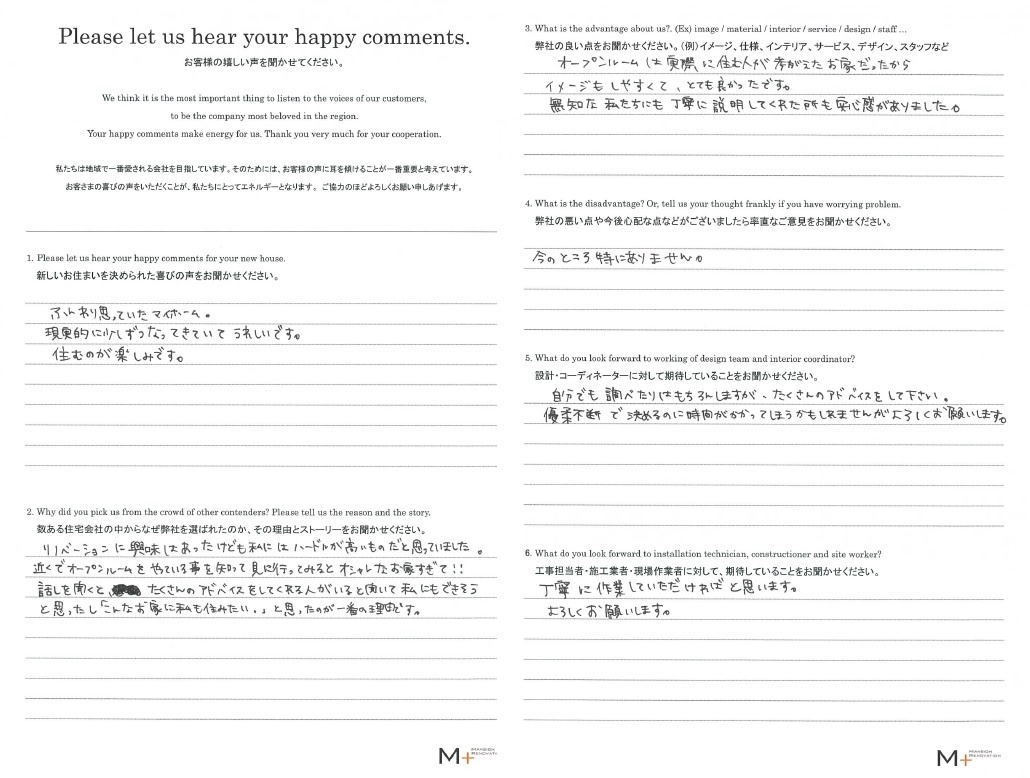 Please let us hear your happy comments.
お客様の嬉しい声を聞かせてください。
We think it is the most important thing to listen to the voices of our customers,
to be the company most beloved in the region.
Your happy comments make energy for us. Thank you very much for your cooperation.
私たちは地域で一番愛される会社を目指しています。そのためには、お客様の声に耳を傾けることが一番重要と考えています。
お客さまの喜びの声をいただくことが、私たちにとってエネルギーとなります。ご協力のほどよろしくお願い申しあげます。
1. Please let us hear your happy comments for your new house.
新しいお住まいを決められた喜びの声をお聞かせください。
ふんわり思っていたマイホーム。
現実的に少しずつなってきていてうれしいです。
住むのが楽しみです。
2. Why did you pick us from the crowd of other contenders? Please tell us the reason and the story.
数ある住宅会社の中からなぜ弊社を選ばれたのか、その理由とストーリーをお聞かせください。
リノベーションに興味はあったけども私にはハードルが高いものだと思っていました。
近くでオープンルームをやっている事を知って見に行ってみるとオシャレなお家すぎて!!
話しを聞くと、たくさんのアドバイスをしてくれる人がいると聞いて私にもできそう
と思ったし「こんなお家に私も住みたい。」と思ったのが一番の理由です。
M+ MANSION RENOVATION
3. What is the advantage about us?. (Ex) image / material / interior / service / design / staff ...
弊社の良い点をお聞かせください。(例)イメージ、仕様、インテリア、サービス、デザイン、スタッフなど
オープンルームは実際に住む人が考がえたお家だったから
イメージもしやすくて、とても良かったです。
無知な私たちにも丁寧に説明してくれた所も安心感がありました。
4. What is the disadvantage? Or, tell us your thought frankly if you have worrying problem.
弊社の悪い点や今後心配な点などがございましたら率直なご意見をお聞かせください。
今のところ特にありません。
5. What do you look forward to working of design team and interior coordinator?
設計・コーディネーターに対して期待していることをお聞かせください。
自分でも調べたりはもちろんしますが、たくさんのアドバイスをして下さい。
優柔不断で決めるのに時間がかかってしまうかもしれませんがよろしくお願いします。
6. What do you look forward to installation technician, constructioner and site worker?
工事担当者・施工業者・現場作業者に対して、期待していることをお聞かせください。
丁寧に作業していただければと思います。
よろしくお願いします。
M+ MANSION RENOVATION